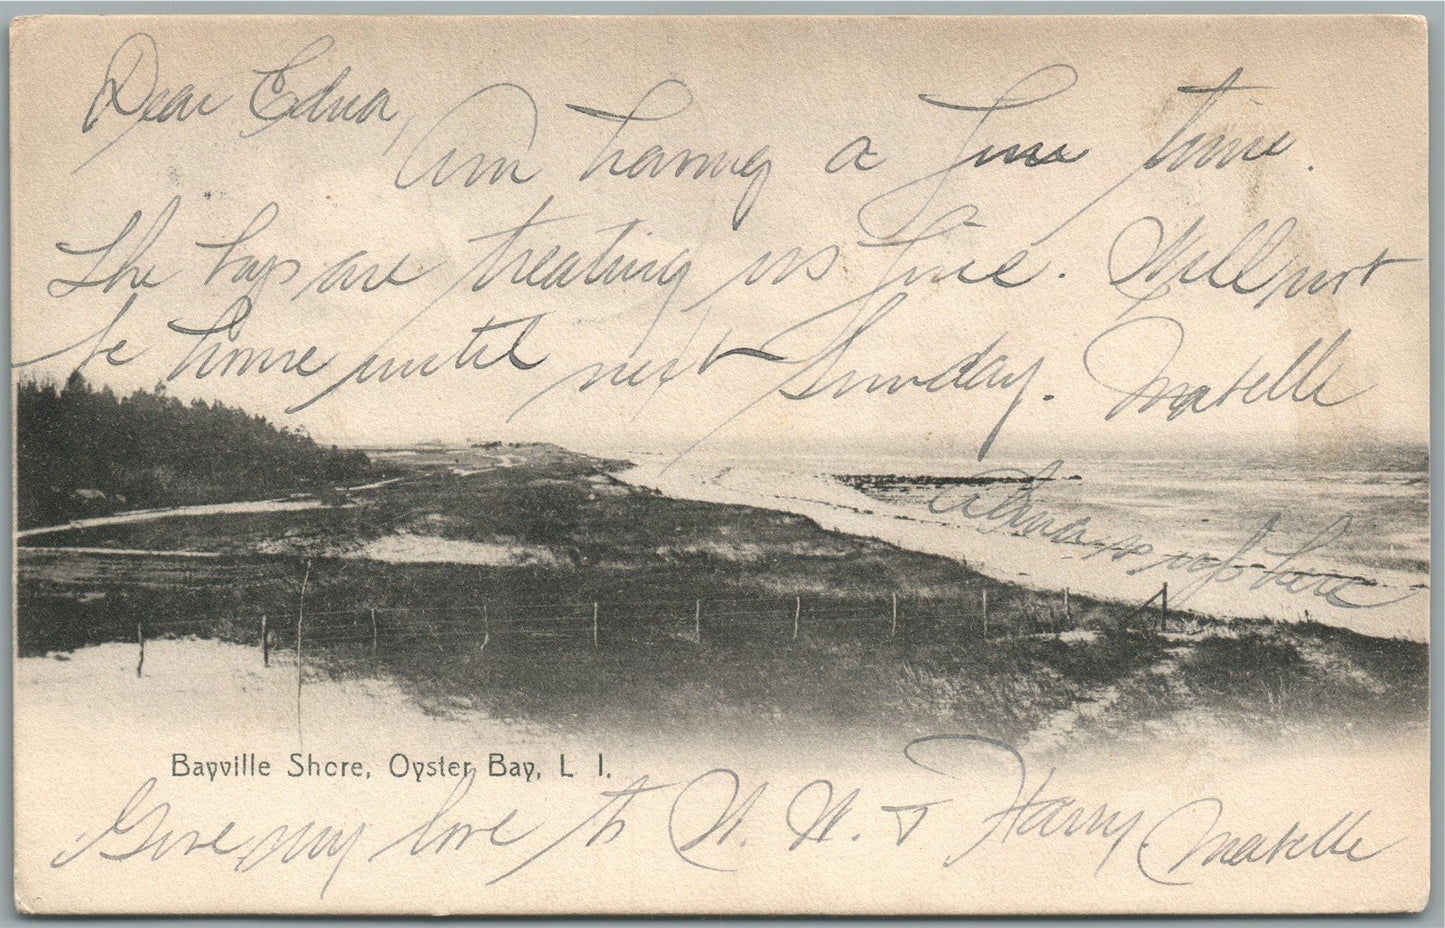 Dear Edna,
Am having a fine time.
The boys are treating us fine. Will not
be home until next Sunday. Mabelle
is up here
Bayville Shore, Oyster Bay, L I.
Give my love to W. W. & Harry. Mabelle